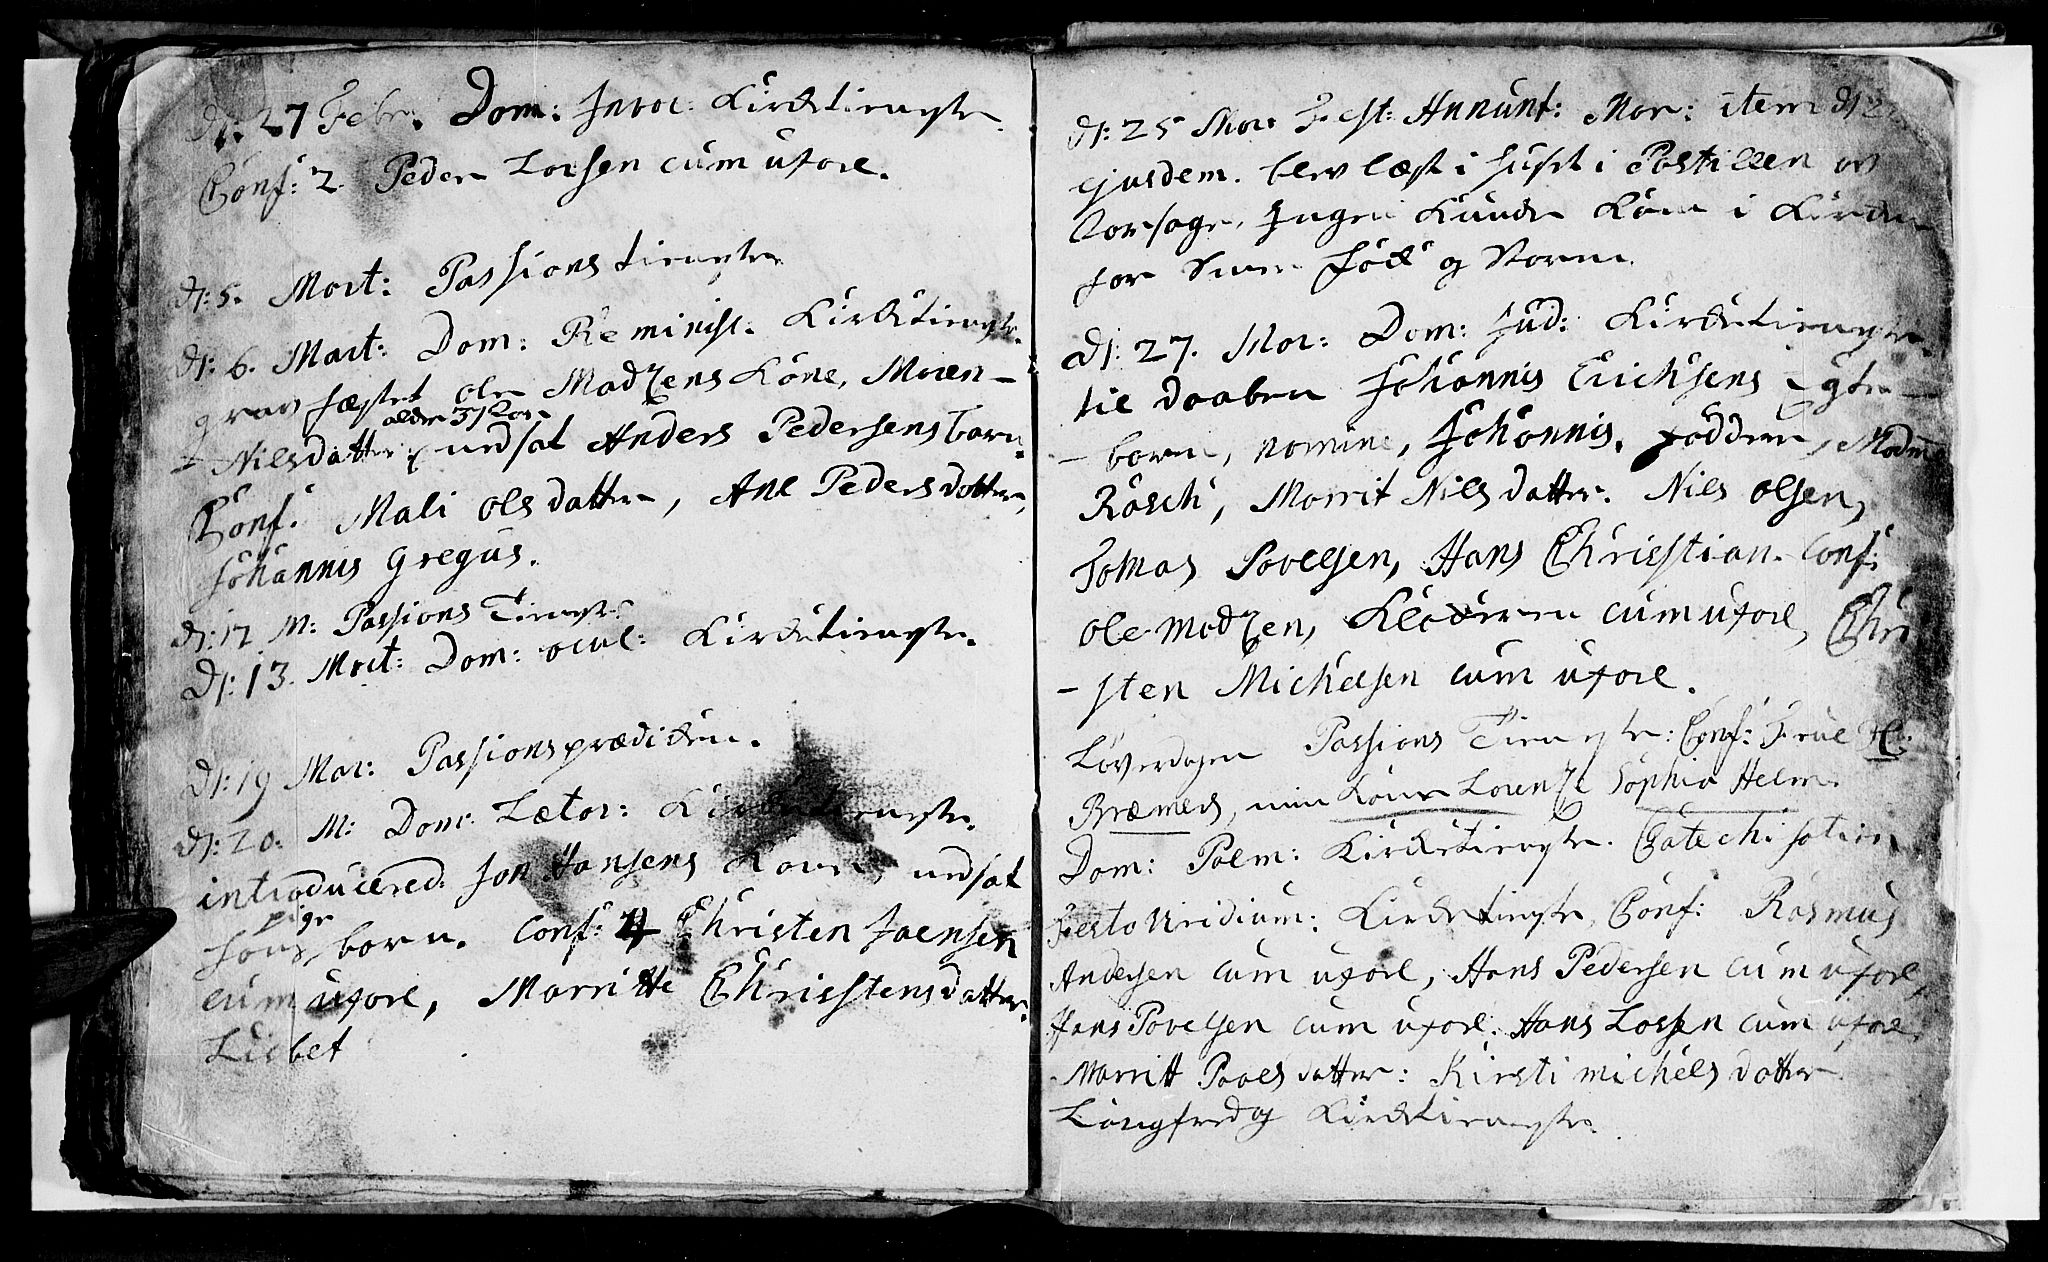 dj: 27 Febr. Dom: Invoc: Kirketienyste.
Conf: 2. Peder Lorsen cum uxore.
dj: 5. Mart: Passions tienyste
dj: 6. Mart: Dom: Reminisc: Kirketienyste.
grav fæstet ole Madzens Kone, Maren
Nilsdatter, alder 37 aar udsat Anders Pedersens barn.
Conf: Mali olsdatter, Ane Pedersdatter,
Johannis Gregus.
dj: 12. M: Passions Tienyste
dj: 13. Mart: Dom: ocul: Kirketienyste.
dj: 19 Mar: Passionsprædiken.
dj: 20. M: Dom: Lætar: Kirketienyste.
introducered: Jon Hansens Kone, udsat
hans pige born. Conf: 4 Christen Jaensen
cum uxore, Marritte Christensdatter.
Lisbet
dj: 25 Mar: Fest: Anunt: Mar: item dj 2
ejusdem. blev læst i huset i Postillen
 Ingen kunde kom i Kirken
for Snee föck og Storm.
dj: 27. Mar: Dom: Jud: Kirketienyste.
til daaben Johannis Erichsens Egte
born, nomine, Johannis. fadder, Madm
Rosch, Marrit Nilsdatter. Nils olsen,
Tomas Povelsen, Hans Christian. Conf:
ole Madzen, Klockeren cum uxore, Chri
sten Michelsen cum uxore.
Löverdagen Passions Tienyste: Conf: Frue Hr:
Bræmers, min Kone Lorentze Sophia Helm.
Dom: Palm: Kirketienyste. Catechisation
Festo Viridium: Kirketienyste, Conf: Rasmus
Andersen cum uxore, Hans Pedersen cum uxore,
Hans Povelsen cum uxore. Hans Lassen cum uxore.
Marritt Povelsdatter: Kirsti michelsdatter
Langfredag Kirketienyste.